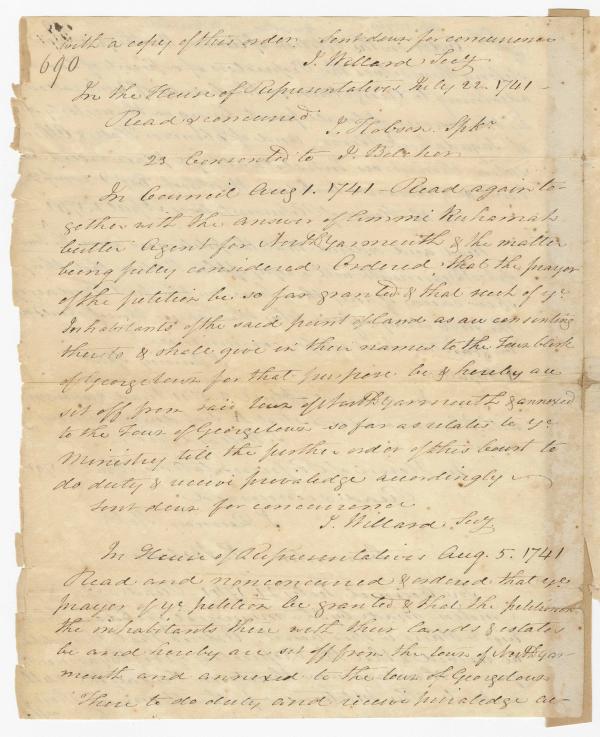 with a copy of this order. Sent down for concurrence
690
J. Willard Secy
In the House of Representatives July 22. 1741 -
Read & concurred
J. Hobson Spkr
23 Consented to J. Belcher
In Council Aug 1. 1741 - Read again to-
gether with the answer of Ammi Ruhamah
Cutter Agent for North Yarmouth & the matter
being fully considered Ordered that the prayer
of the petition be so far granted & that such of ye
Inhabitants of the said point of land as are consenting
thereto & shall give in their names to the Town Clerk
of Georgetown for that purpose be & hereby are
sit off from said town of North Yarmouth & annexed
to the Town of Georgetown so far as relates to ye
Ministry till the further order of this Court to
do duty & receive priviledge accordingly
Sent down for concurrence
J. Willard Secy
In House of Representatives Aug. 5. 1741
Read and nonconcurred & ordered that ye
prayer of ye petition be granted & that the petitioners
the inhabitants there with their lands & estates
be and hereby are sit off from the town of North Yar-
mouth and annexed to the town of Georgetown
There to do duty and receive priviledge ac-